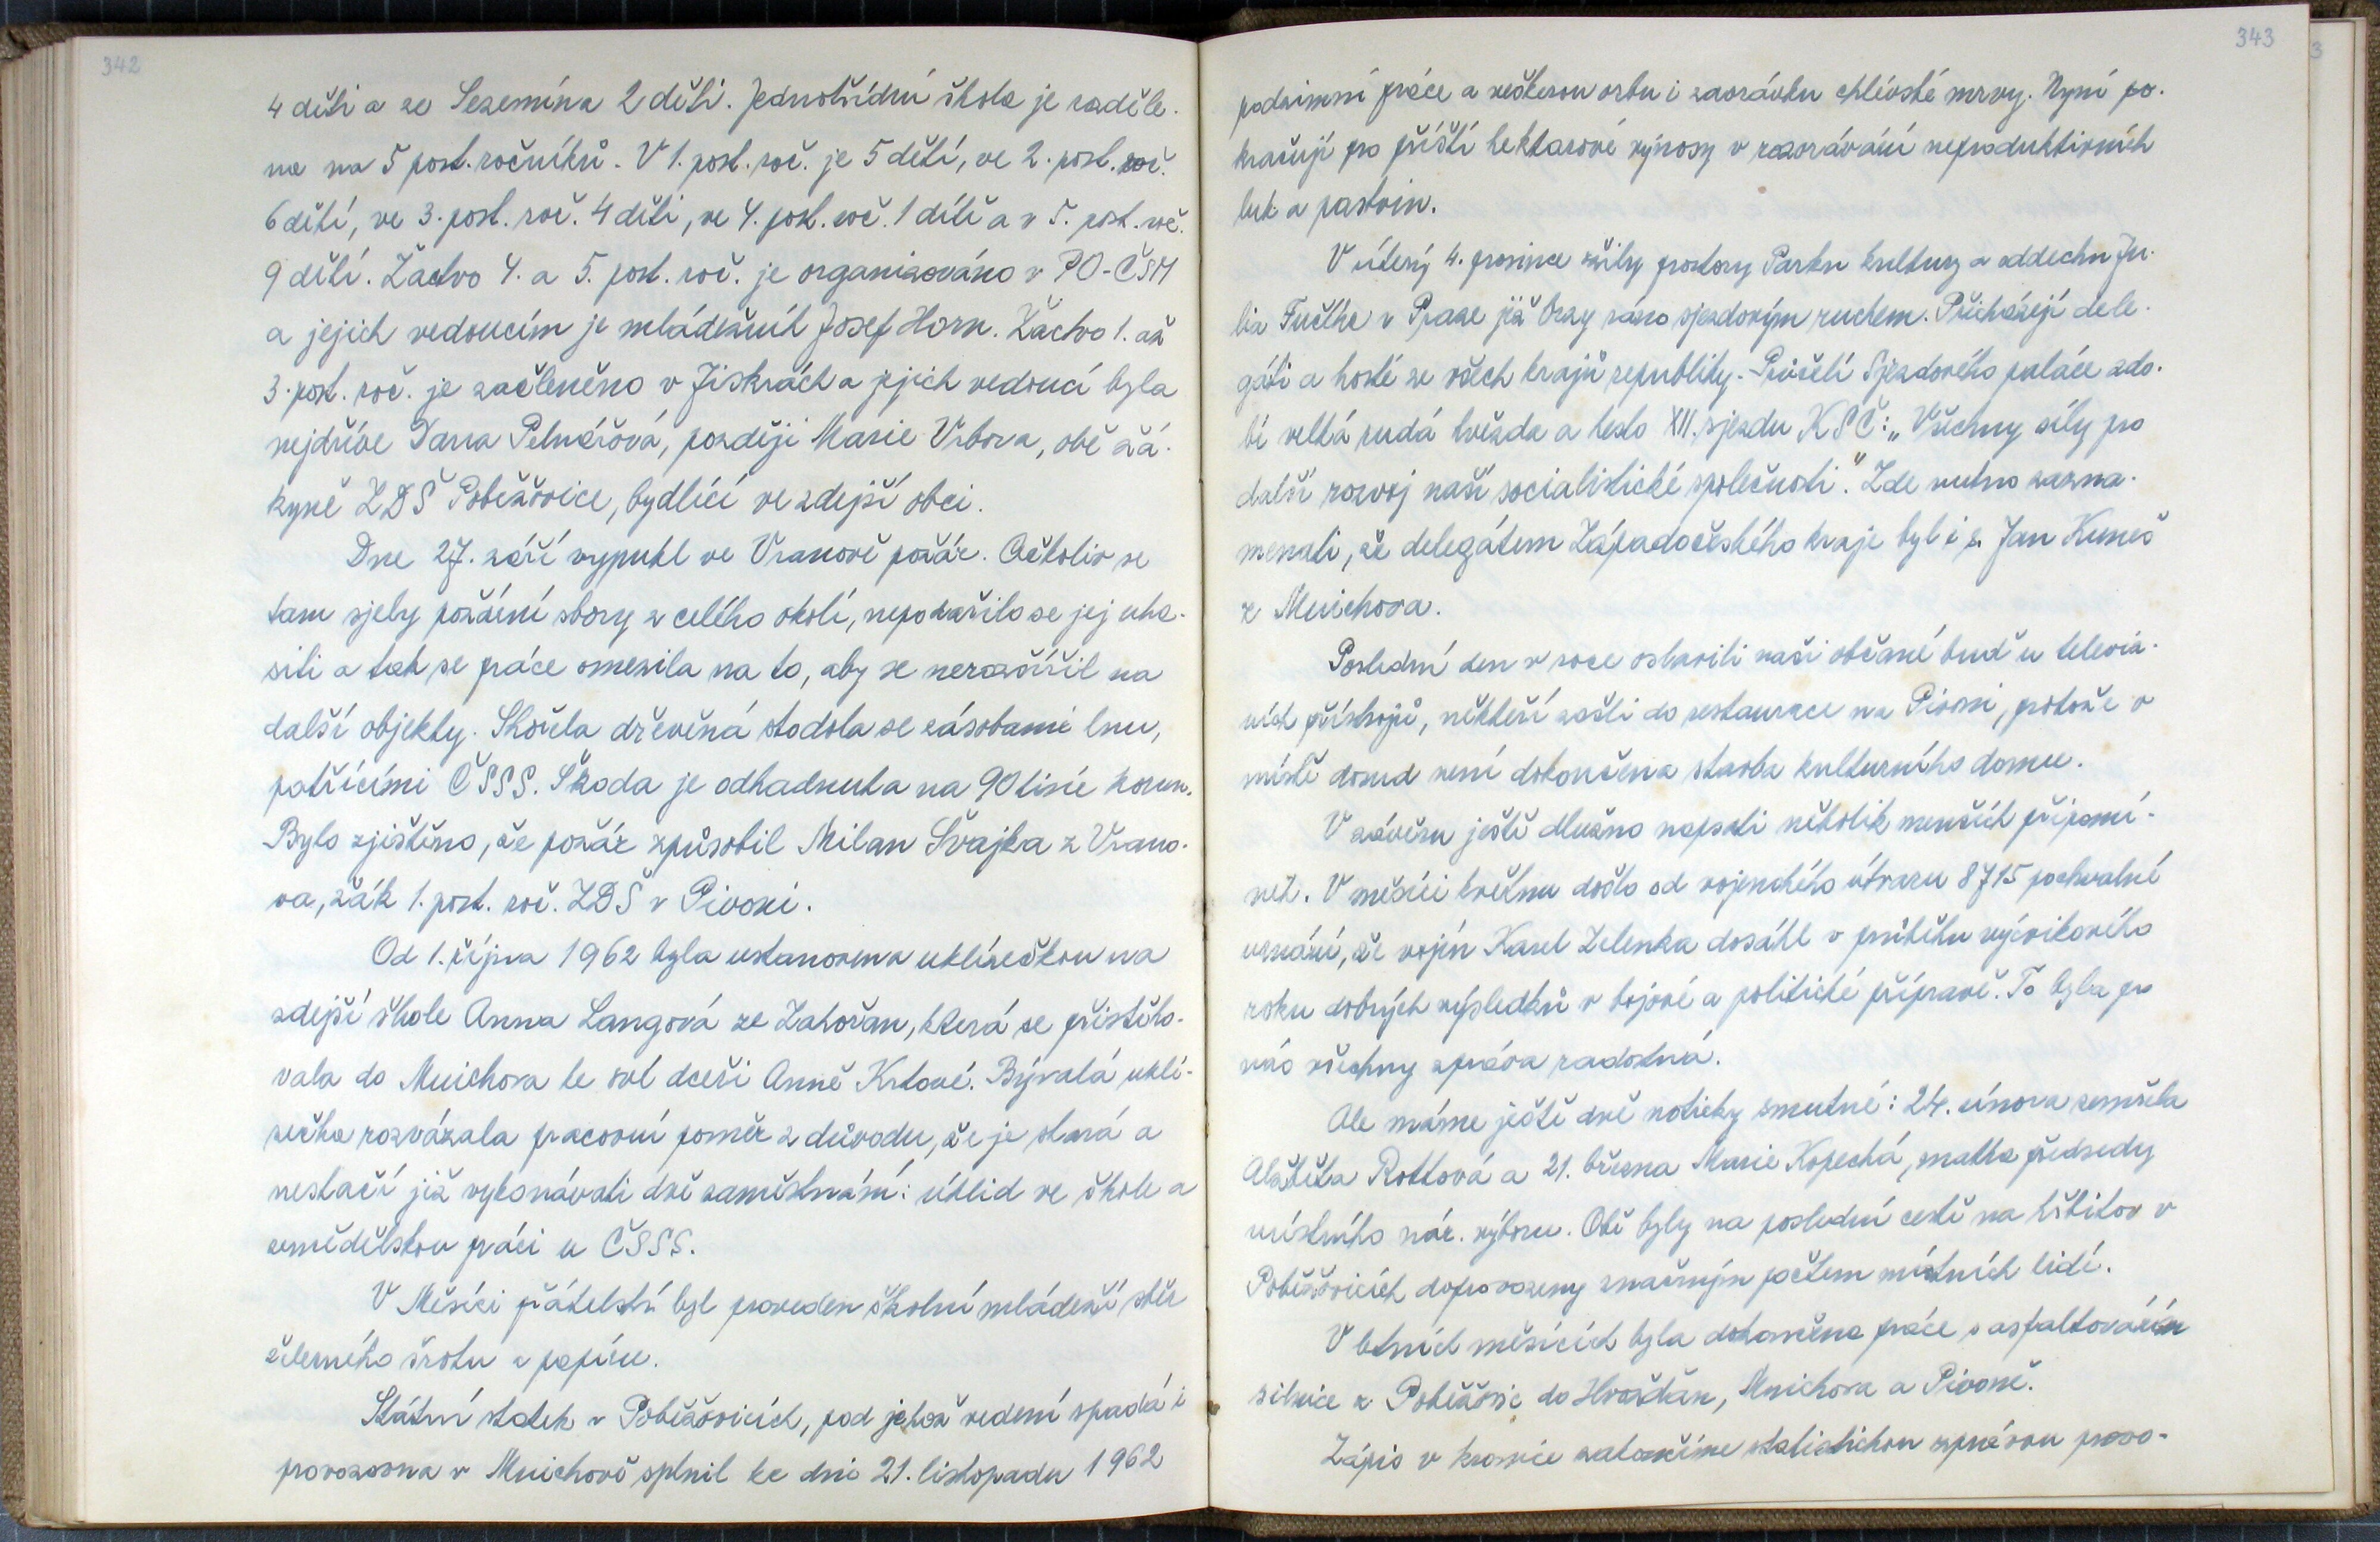 342
4 děti a ze Sezemína 2 děti. Jednotřídní škola je rozděle-
na na 5 post. ročníků. V 1. post. roč. je 5 dětí, ve 2. post. roč.
6 dětí, ve 3. post. roč. 4 děti, ve 4. post. roč. 1 dítě a v 5. post. roč.
9 dětí. Žactvo 4. a 5. post. roč. je organizováno v PO-ČSM
a jejich vedoucím je mládežník Josef Horn. Žactvo 1. až
3. post. roč. je začleněno v Jiskrách a jejich vedoucí byla
nejdříve Dana Pelnářová, později Marie Vrbova, obě žá-
kyně ZDŠ Poběžovice, bydlící ve zdejší obci.
Dne 27. září vypukl ve Vranově požár. Ačkoliv se
tam sjely požární sbory z celého okolí, nepodařilo se jej uha-
siti a tak se práce omezila na to, aby se nerozšířil na
další objekty. Shořela dřevěná stodola se zásobami lnu,
patřícími ČSSS. Škoda je odhadnuta na 90 tisíc korun.
Bylo zjištěno, že požár způsobil Milan Švajka z Vrano-
va, žák 1. post. roč. ZDŠ v Pivoni.
Od 1. října 1962 byla ustanovena uklízečkou na
zdejší škole Anna Langová ze Zahořan, která se přistěho-
vala do Mnichova ke své dceři Anně Krtové. Bývalá uklí-
zečka rozvázala pracovní poměr z důvodu, že je stará a
nestačí již vykonávati dvě zaměstnání: úklid ve škole a
zemědělskou práci u ČSSS.
V Měsíci přátelství byl proveden školní mládeží sběr
železného šrotu a papíru.
Státní statek v Poběžovicích, pod jehož vedení spadá i
provozovna v Mnichově splnil ke dni 21. listopadu 1962
343
podzimní práce a veškerou orbu i zaorávku chlévské mrvy. Nyní po-
kračují pro příští hektarové výnosy v rozorávání neproduktivních
luk a pastvin.
V úterý 4. prosince ožily prostory Parku kultury a oddechu Ju-
lia Fučíka v Praze již brzy ráno sjezdovým ruchem. Přicházejí dele-
gáti a hosté ze všech krajů republiky. Průčelí Sjezdového paláce zdo-
bí velká rudá hvězda a heslo XII. sjezdu KSČ: „Všechny síly pro
další rozvoj naší socialistické společnosti." Zde nutno zazna-
menati, že delegátem Západočeského kraje byl i s. Jan Kuneš
z Mnichova.
Poslední den v roce oslavili naši občané buď u televiz-
ních přístrojů, někteří zašli do restaurace na Pivoni, protože v
místě dosud není dokončena stavba kulturního domu.
V závěru ještě dlužno napsati několik menších připomí-
nek. V měsíci květnu došlo od vojenského útvaru 8715 pochvalné
uznání, že vojín Karel Zelenka dosáhl v průběhu výcvikového
roku dobrých výsledků v bojové a politické přípravě. To byla pro
nás všechny zpráva radostná.
Ale máme ještě dvě notičky smutné: 24. února zemřela
Alžběta Rottová a 21. března Marie Kopecká, matka předsedy
místního nár. výboru. Obě byly na poslední cestě na hřbitov v
Poběžovicích doprovozeny značným počtem místních lidí.
V letních měsících byla dokončena práce s asfaltováním
silnice z Poběžovic do Hvožďan, Mnichova a Pivoně.
Zápis v kronice zakončíme statistickou zprávou provo-